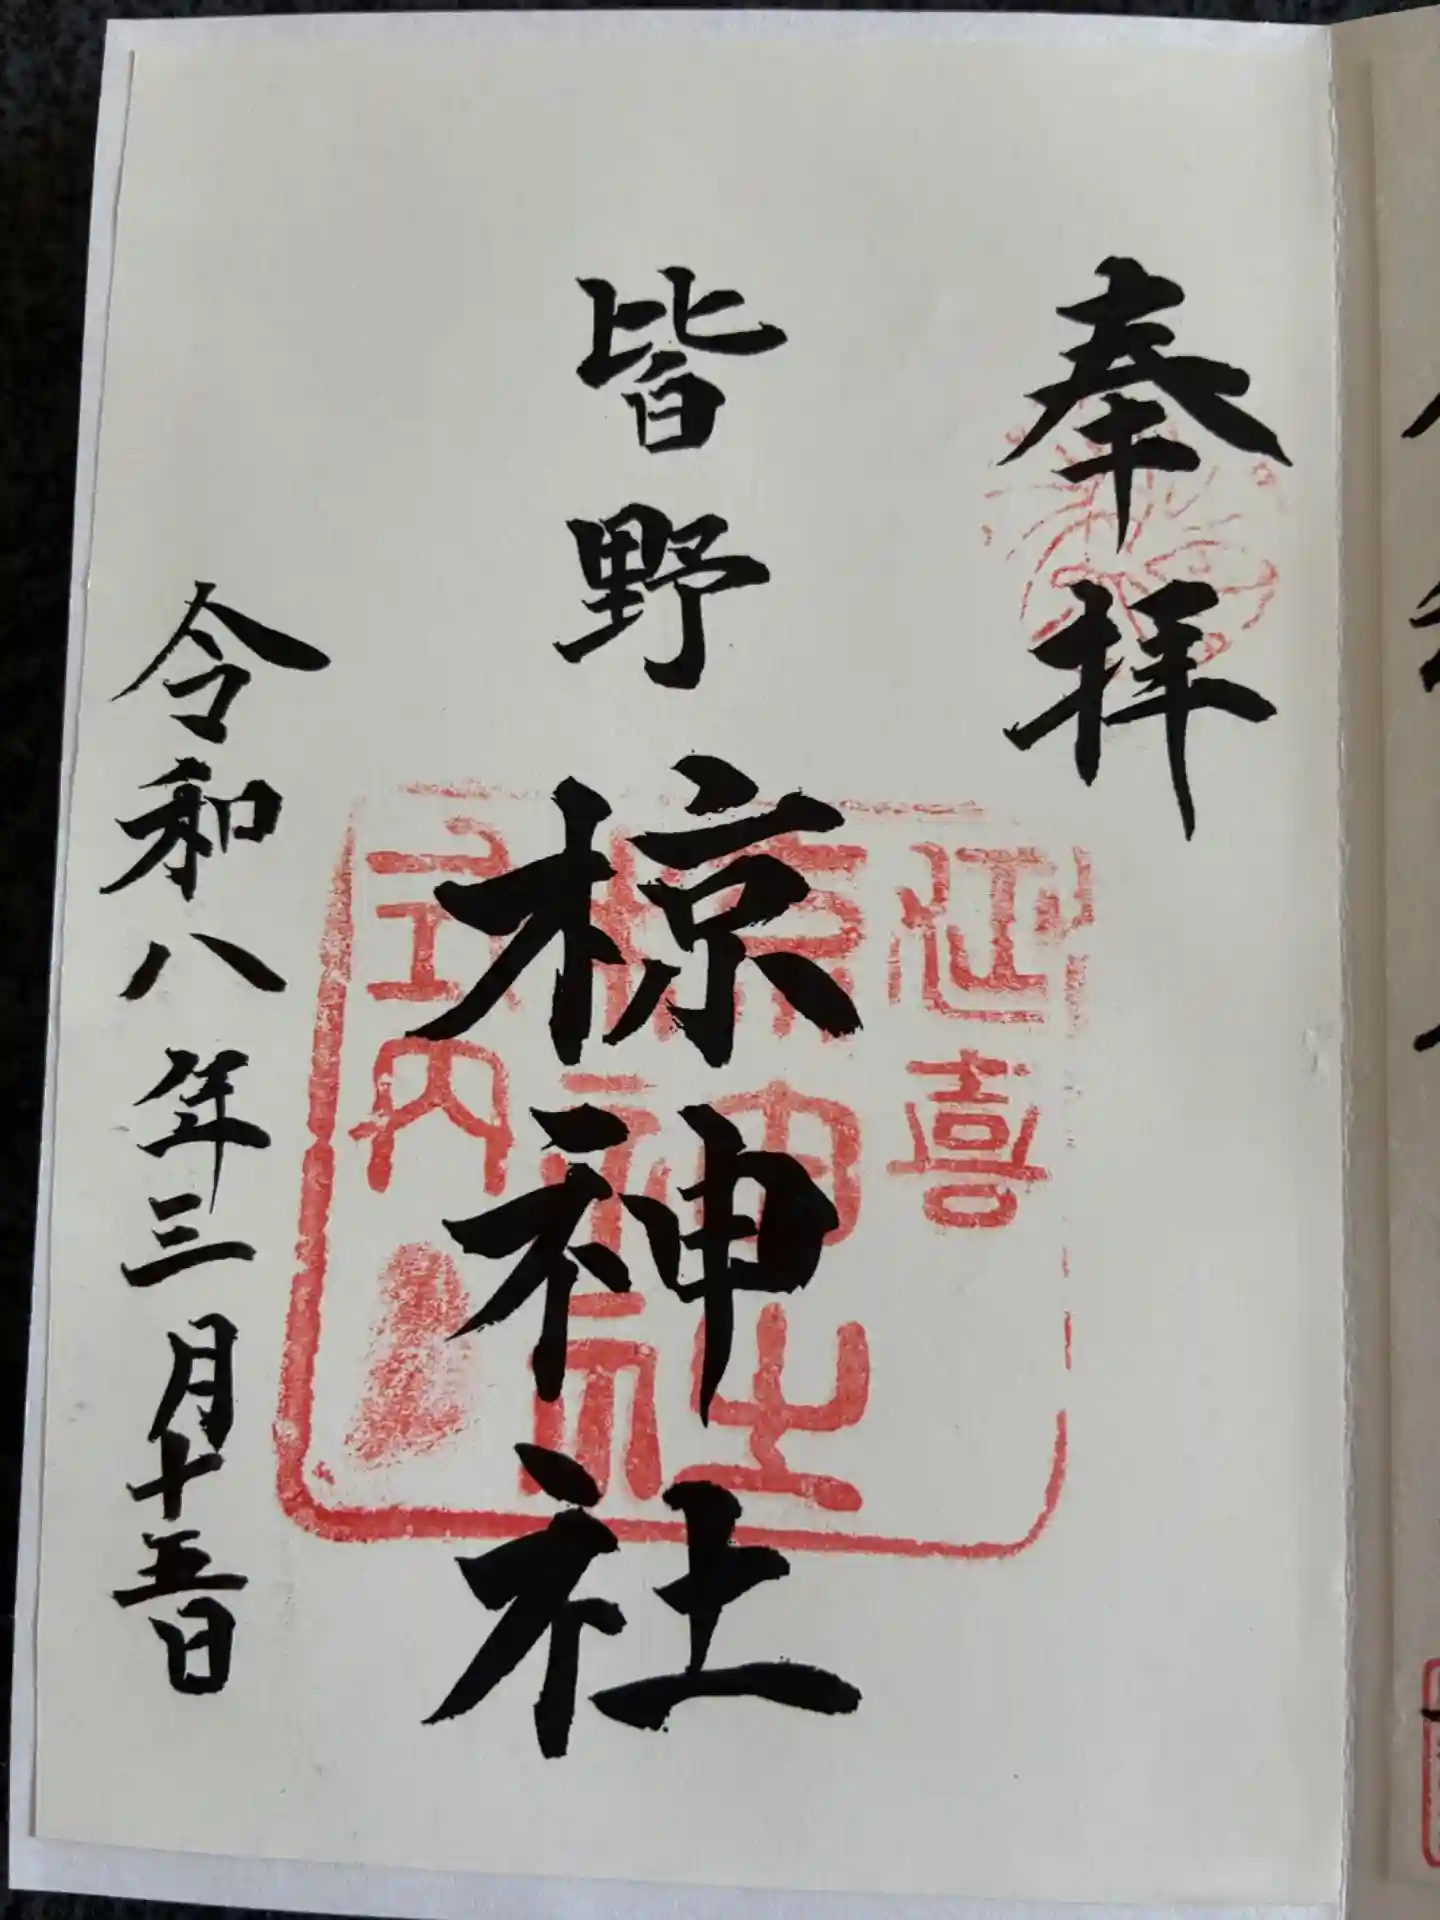 奉拝
延喜
皆野
椋神社
椋神社
式内
令和八年三月十五日